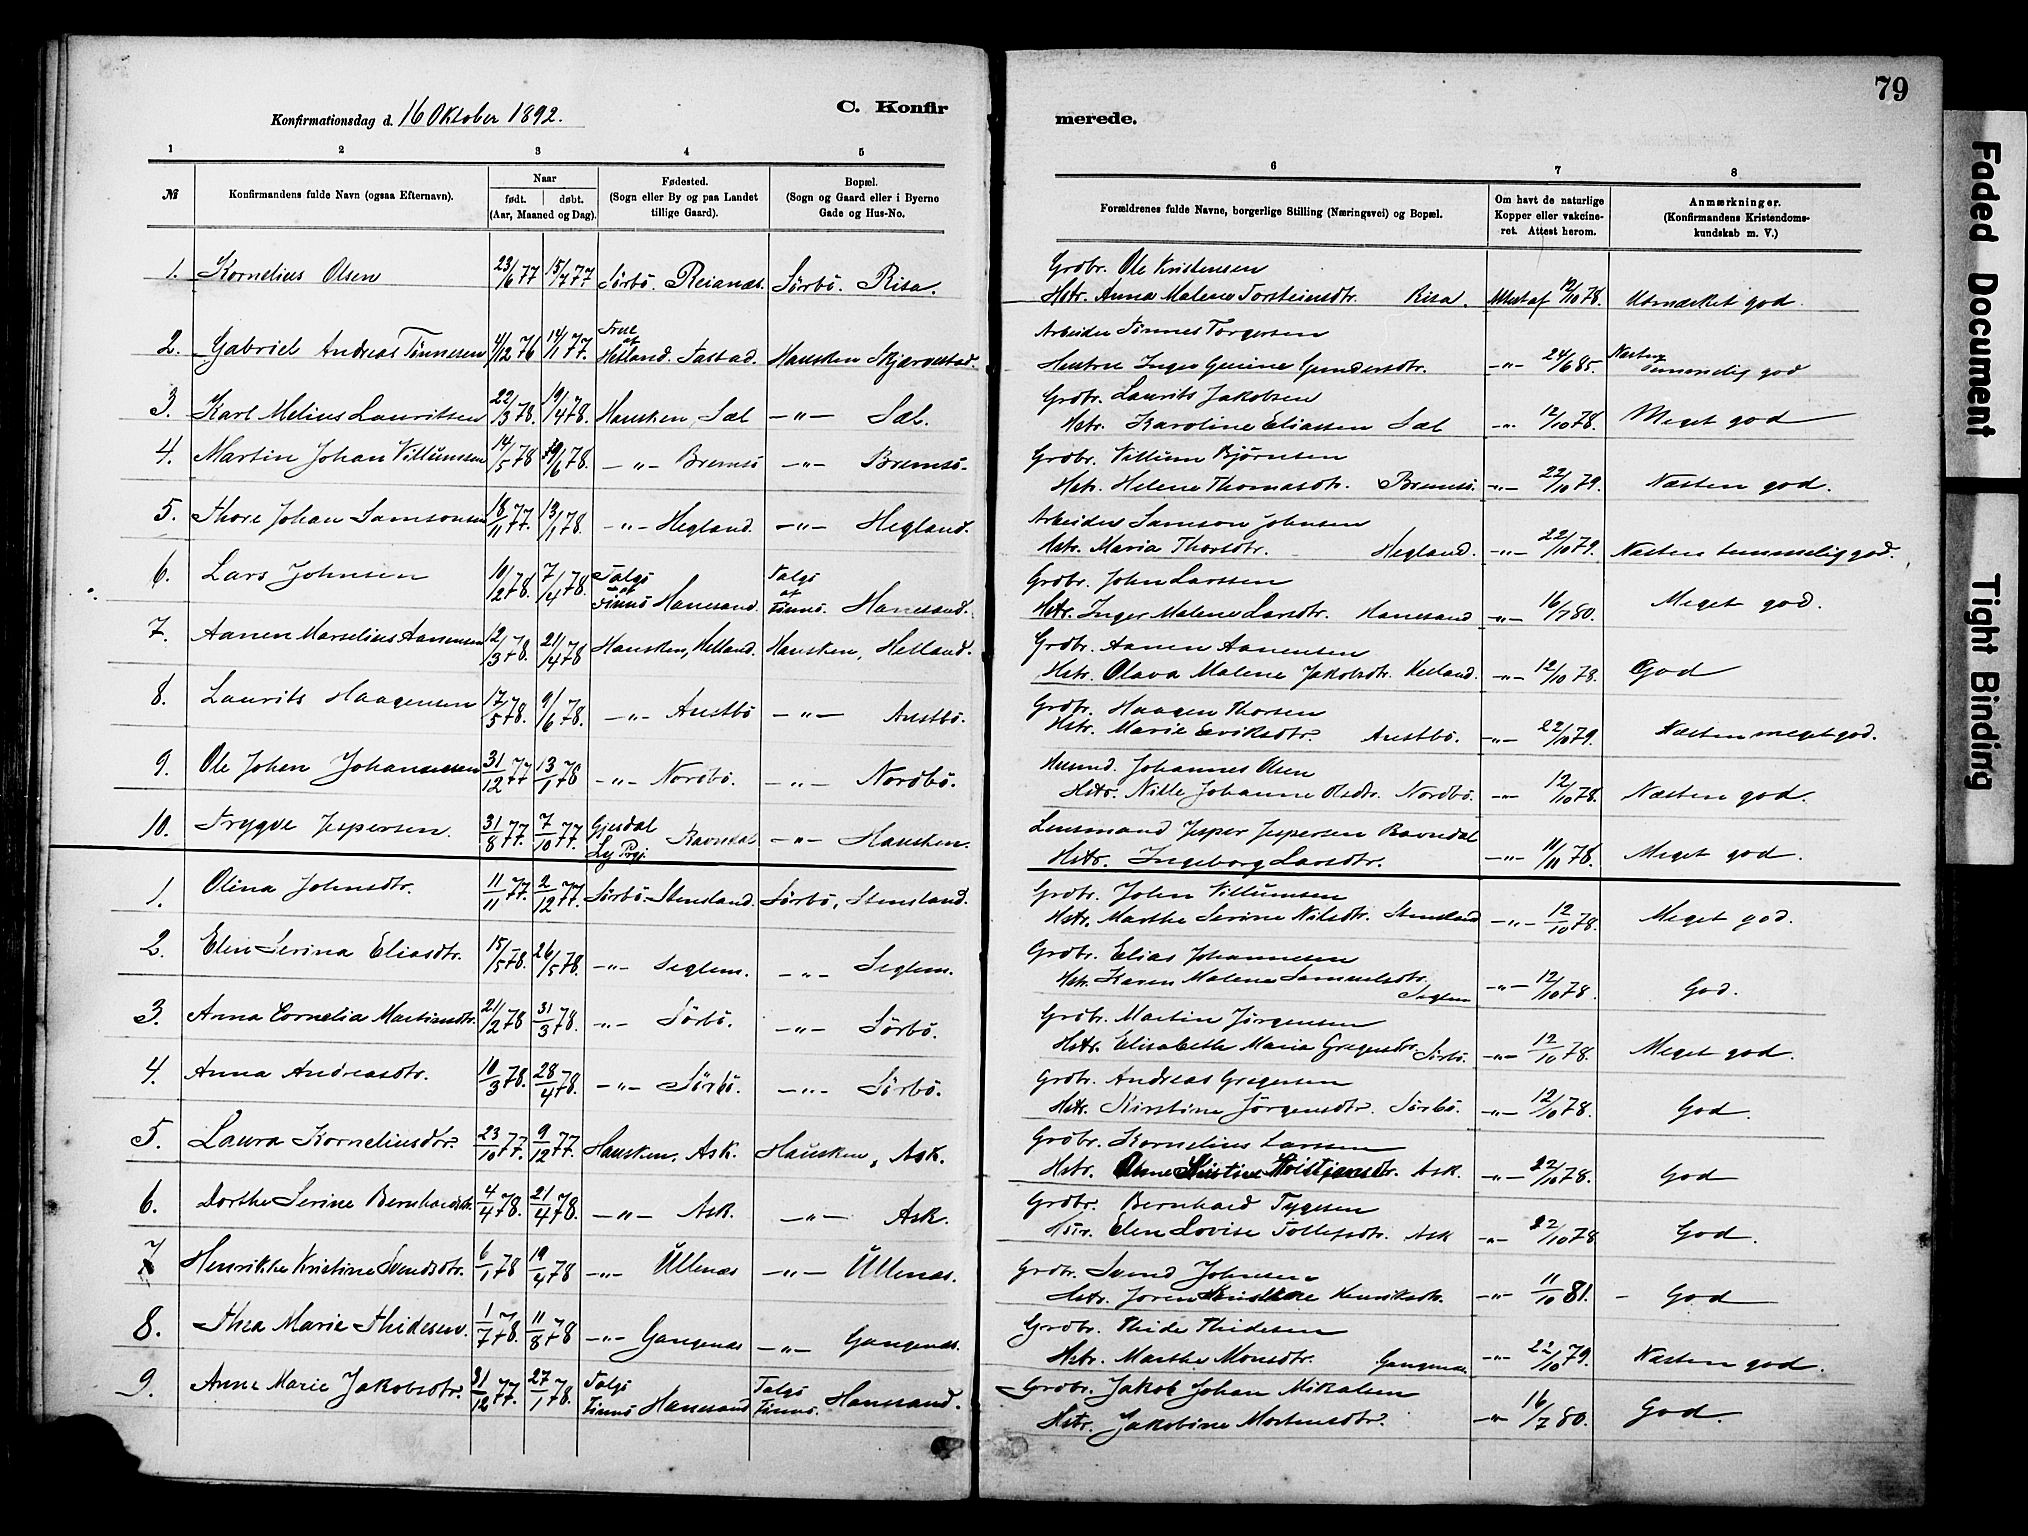 79
Konfirmationsdag d. 16 Oktober 1892.
C. Konfir
merede.
1 2 3 4 5 6 7 8
№
Konfirmandens fulde Navn (ogsaa Efternavn).
Naar
født. døbt.
(Aar, Maaned og Dag).
Fødested.
(Sogn eller By og paa Landet
tillige Gaard).
Bopæl.
(Sogn og Gaard eller i Byerne
Gade og Hus-No.
Forældrenes fulde Navne, borgerlige Stilling (Næringsvei) og Bopæl.
Om havt de naturlige
Kopper eller vakcine-
ret. Attest herom.
Anmærkninger.
(Konfirmandens Kristendoms-
kundskab m. V.)
1. Kornelius Olsen 23/6 77 15/7 77 Sørbø. Reianæs. Sørbø. Risa.
Grdbr. Ole Kristensen
Hstr. Anna Malene Torsteinsdtr. Risa. Attest af 12/10 78. Udmærket god.
2. Gabriel Andreas Tønnesen 4/12 76 14/1 77. Frue af Hetland. Tastad. Hausken Skjærvestad.
Arbeider Tønnes Torgersen
Hustru Inger Gurine Gundersdtr. -"- 24/6 85. Næsten temmelig god
3. Karl Melius Lauritsen 22/3 78. 19/4 78. Hausken, Sæl -"- Sæl.
Grdbr. Laurits Jakobsen
Hstr. Karoline Eliassen Sæl -"- 12/10 78. Meget god
4. Martin Johan Villumsen 14/5 78 /6 78. -"- Bremsø -"- Bremsø.
Grdbr. Villum Bjørnsen
Hstr. Helene Thomasdtr. Bremsø. -"- 22/10 79. Næsten god.
5. Thore Johan Samsonsen 18/11 77. 13/1 78. -"- Hegland. -"- Hegland.
Arbeider Samson Johnsen
Hstr. Maria Thorsdtr. Hegland. -"- 22/10 79. Næsten temmelig god.
6. Lars Johnsen 10/2 78. 7/4 78. Talgø af Finnø Hanesand. Talgø af Finnø. Hanesand.
Grdbr. John Larssen
Hstr. Inger Malene Larsdtr. Hanesand -"- 16/7 80. Meget god.
7. Aanen Marselius Aanensen 12/3 78. 21/4 78 Hausken, Helland. Hausken, Helland.
Grdbr. Aanen Aanensen
Hstr. Olava Malene Jakobsdtr. Helland. -"- 12/10 78. God
8. Laurits Haagensen 17/5 78. 9/6 78. -"- Austbø -"- Austbø.
Grdbr. Haagen Thorsen
Hstr. Marie Eriksdtr. Austbø. -"- 22/10 79. Næsten meget god.
9. Ole Johan Johannesen 31/12 77 13/1 78 -"- Nordbø. -"- Nordbø.
Husmd. Johannes Olsen
Hstr. Nille Johanne Olsdtr. Nordbø. -"- 12/10 78. Næsten god.
10. Trygve Jespersen. 31/8 77. 7/10 77. Gjesdal Ly Prgj. Ravndal -"- Hausken.
Lensmand Jesper Jespersen Ravndal
Hstr. Ingeborg Larsdtr. -"- 11/11 78. Meget god.
1. Olina Johnsdtr. 11/11 77. 2/12 77. Sørbø. Stensland. Sørbø, Stensland.
Grdbr. John Villumsen
Hstr. Marthe Serine Nilsdtr. Stensland -"- 12/10 78. Meget god.
2. Elen Serina Eliasdtr. 15/5 78. 26/5 78. -"- Seglem. -"- Seglem.
Grdbr. Elias Johannesen
Hstr. Karen Malene Samuelsdtr. Seglem -"- 12/10 78. God.
3. Anna Cornelia Martinsdtr. 21/2 78 31/3 78. -"- Sørbø. -"- Sørbø.
Grdbr. Martin Jørgensen
Hstr. Elisabeth Maria Gregersdtr. Sørbø. -"- 12/10 78. Meget god.
4. Anna Andreasdtr. 10/3 78. 28/4 78. -"- Sørbø. -"- Sørbø.
Grdbr. Andreas Gregersen
Hstr. Kirstine Jørgensdtr. Sørbø. -"- 12/10 78. God.
5. Laura Korneliusdtr. 23/10 77. 9/12 77. Hausken, Ask. Hausken, Ask.
Grdbr. Kornelius Larssen
Hstr. Kristiansdtr. Ask. -"- 22/10 78. God
6. Dorthe Serine Bernhardsdtr. 4/4 78. 21/4 78. -"- Ask. -"- Ask.
Grdbr. Bernhard Tygesen
Hstr. Elen Lovise Tollefsdtr. Ask -"- 22/10 78 God.
7 Henrikke Kristine Svendsdtr. 6/1 78 19/4 78 -"- Ullenæs -"- Ullenæs.
Grdbr. Svend Johnsen
Hstr. Henriksdtr. -"- 11/10 81. - God
8. Thea Marie Thidesen. 1/7 78. 11/8 78 -"- Gangenæs -"- Gangenæs.
Grdbr. Thide Thidesen
Hstr. Marthe Monsdtr. Gangenæs -"- 22/10 79. Næsten god.
9. Anne Marie Jakobsdtr. 31/12 77. 27/1 78. Talgø Finnø Hanesand Talgø Finnø. Hanesand.
Grdbr. Jakob Johan Mikalsen
Hstr. Jakobine Mortensdtr. -"- 16/7 80. God.
Faded Document
Tight Binding